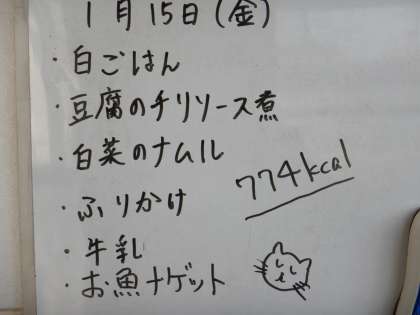 1月15日(金)
・白ごはん
・豆腐のチリソース煮
・白菜のナムル
・ふりかけ
・牛乳
・お魚ナゲット
774kcal